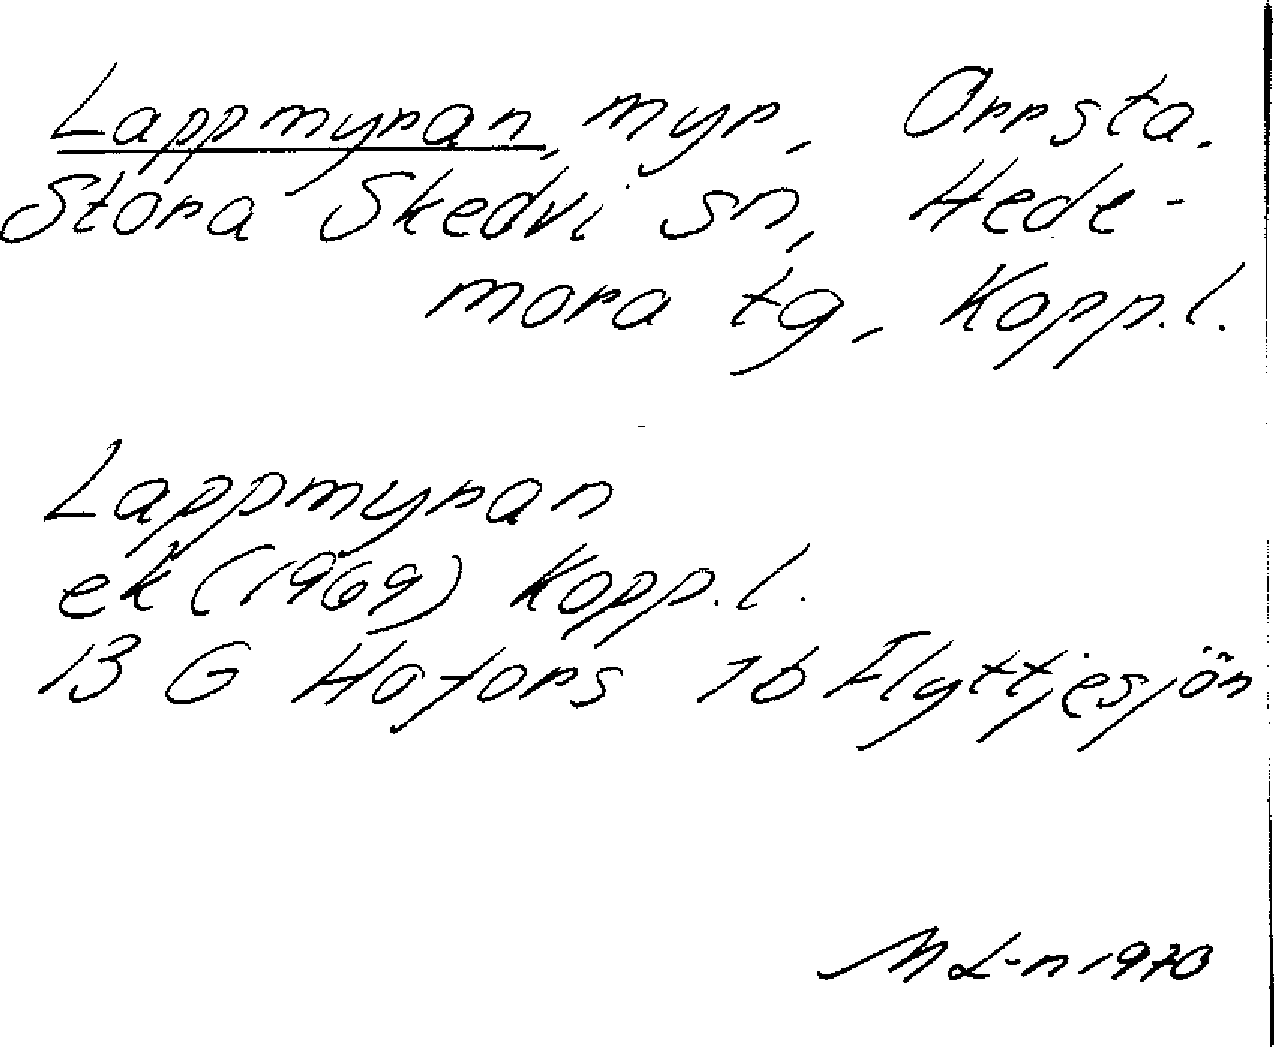 Lappmyran, myr, Orrsta,
Stora Skedvi sn, Hede-
mora tg, Kopp.l.
Lappmyran
ek (1969) Kopp.l.
13 G Hofors 7b Flyttjesjön
M L-n 1970